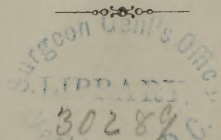 Surgeon Genl's Office
LIBRARY.
30289